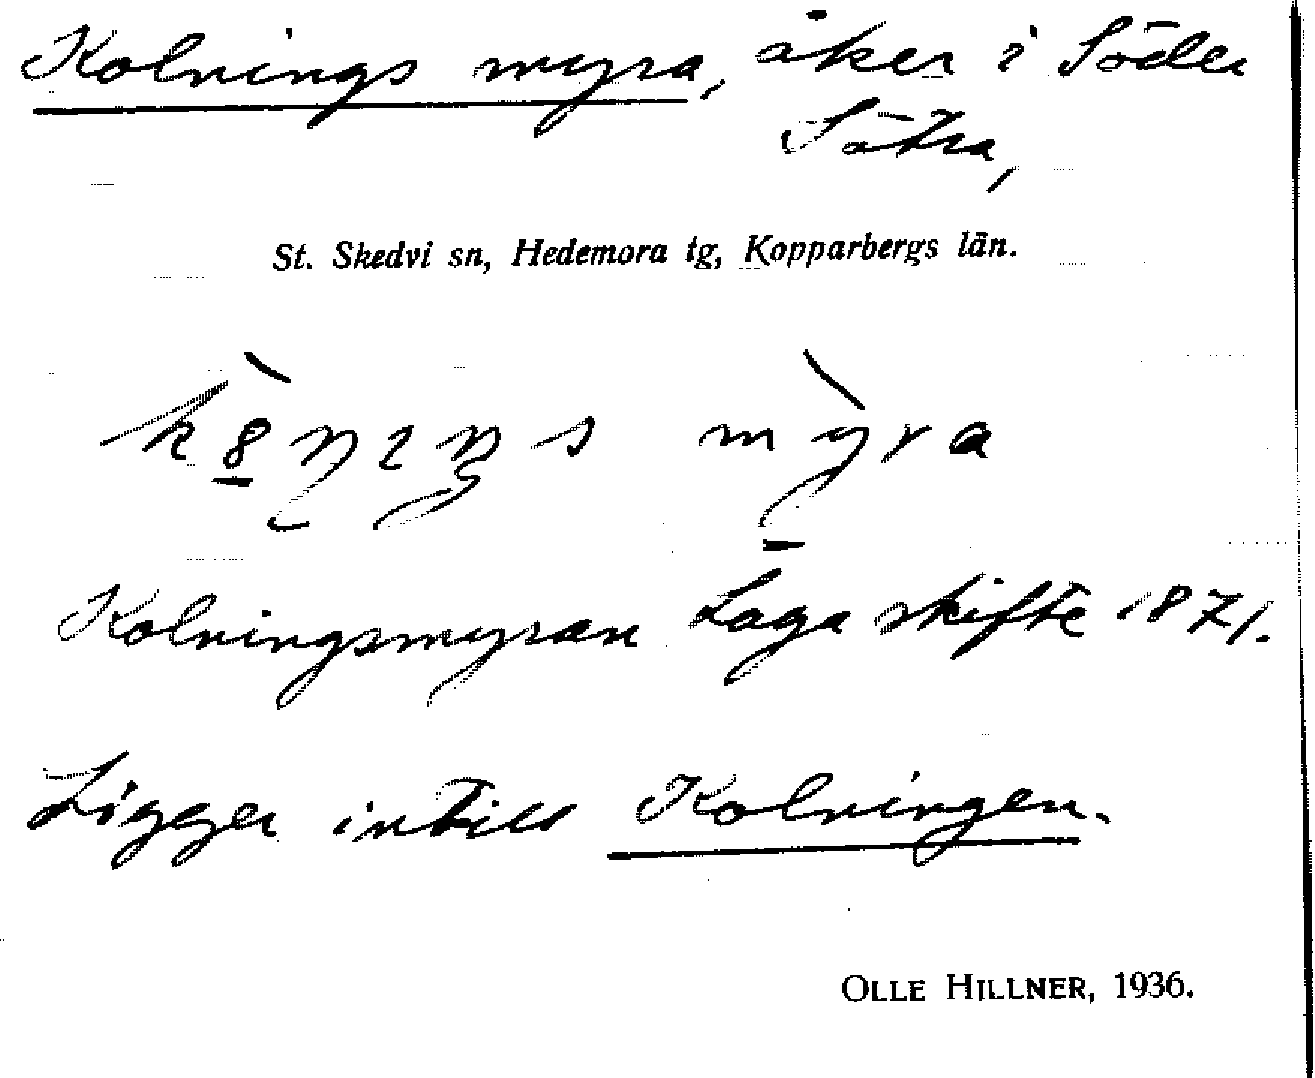 Kolnings myra, åker i Söder
Sätra,
St. Skedvi sn, Hedemora tg, Kopparbergs län.
myra
Kolningsmyran Laga skifte 1871.
Ligger intill Kolningen.
OLLE HILLNER, 1936.